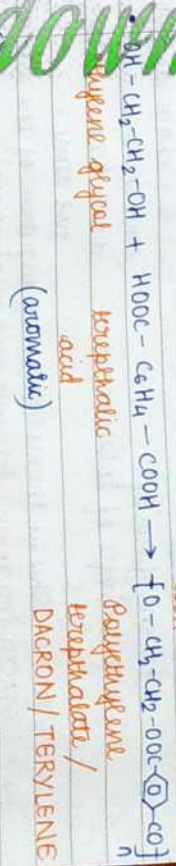 • OH - CH₂ - CH₂ - OH + HOOC - C₆H₄ - COOH → [O - CH₂ - CH₂ - OOC - ⌬ - CO]ₙ
ethylene glycol terepthalic acid Polyethylene terepthalate /
(aromatic) DACRON / TERYLENE